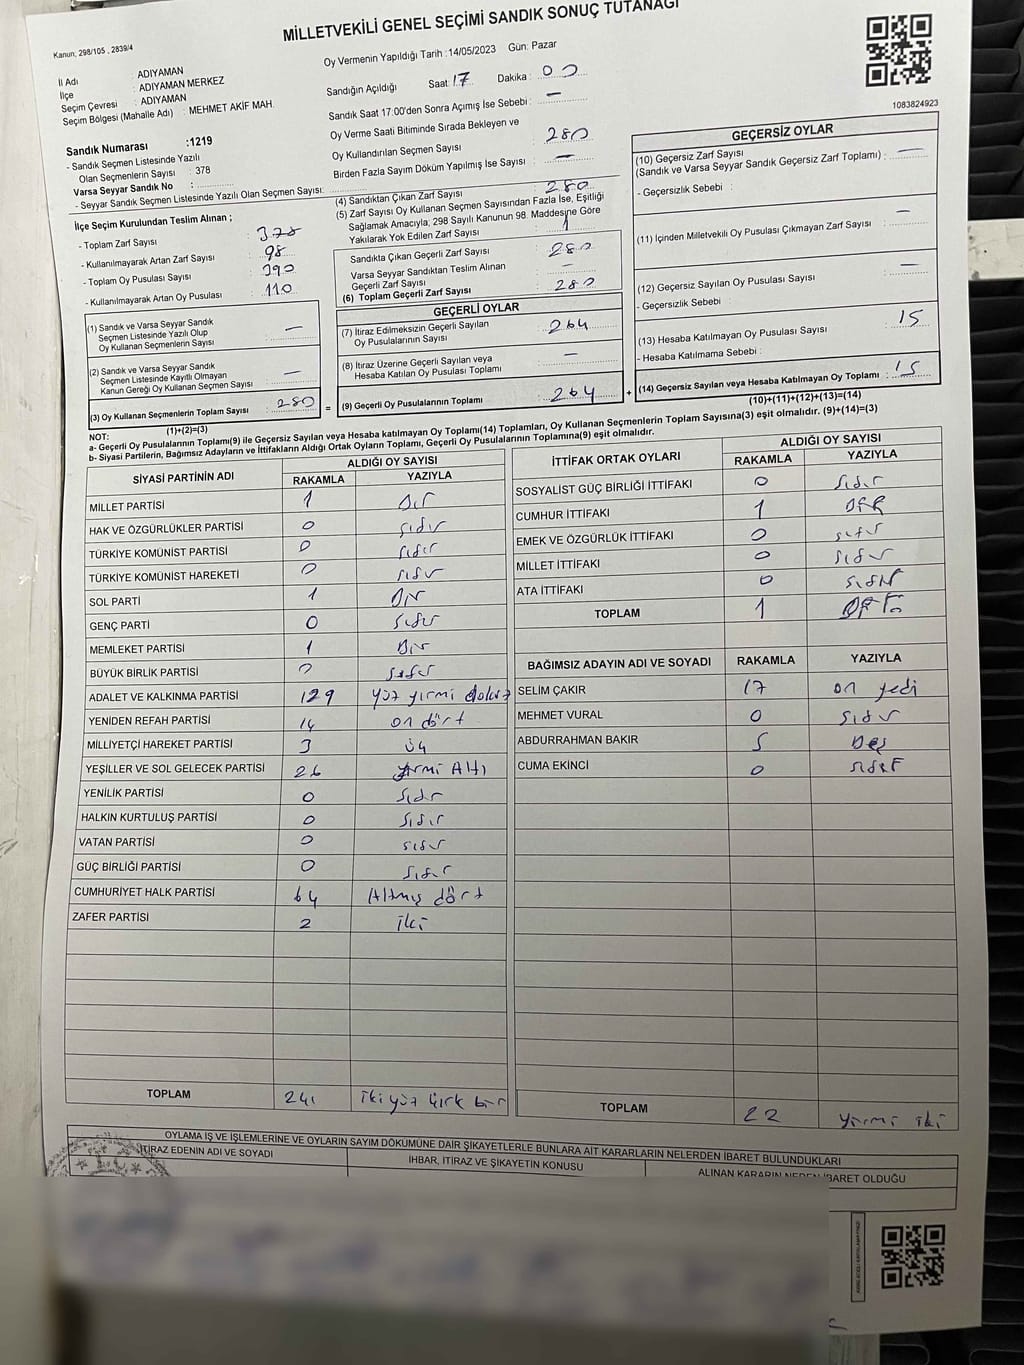 MİLLETVEKİLİ GENEL SEÇİMİ SANDIK SONUÇ TUTANAĞI
Kanun, 298/105 , 2839/4
İl Adı : ADIYAMAN
İlçe : ADIYAMAN MERKEZ
Seçim Çevresi : ADIYAMAN
Seçim Bölgesi (Mahalle Adı) : MEHMET AKİF MAH.
Oy Vermenin Yapıldığı Tarih : 14/05/2023 Gün: Pazar
Sandığın Açıldığı Saat: 17 Dakika : 00
Sandık Saat 17:00'den Sonra Açımış İse Sebebi : —
Oy Verme Saati Bitiminde Sırada Bekleyen ve
Oy Kullandırılan Seçmen Sayısı : 280
Birden Fazla Sayım Döküm Yapılmış İse Sayısı : —
1083824923
Sandık Numarası :1219
- Sandık Seçmen Listesinde Yazılı
Olan Seçmenlerin Sayısı : 378
Varsa Seyyar Sandık No :
- Seyyar Sandık Seçmen Listesinde Yazılı Olan Seçmen Sayısı:
İlçe Seçim Kurulundan Teslim Alınan ;
- Toplam Zarf Sayısı : 378
- Kullanılmayarak Artan Zarf Sayısı : 98
- Toplam Oy Pusulası Sayısı : 390
- Kullanılmayarak Artan Oy Pusulası : 110
(1) Sandık ve Varsa Seyyar Sandık
Seçmen Listesinde Yazılı Olup
Oy Kullanan Seçmenlerin Sayısı : —
(2) Sandık ve Varsa Seyyar Sandık
Seçmen Listesinde Kayıtlı Olmayan
Kanun Gereği Oy Kullanan Seçmen Sayısı : —
(3) Oy Kullanan Seçmenlerin Toplam Sayısı : 280
(1)+(2)=(3)
(4) Sandıktan Çıkan Zarf Sayısı : 280
(5) Zarf Sayısı Oy Kullanan Seçmen Sayısından Fazla İse, Eşitliği
Sağlamak Amacıyla; 298 Sayılı Kanunun 98. Maddesine Göre
Yakılarak Yok Edilen Zarf Sayısı : 1
Sandıkta Çıkan Geçerli Zarf Sayısı : 280
Varsa Seyyar Sandıktan Teslim Alınan
Geçerli Zarf Sayısı : —
(6) Toplam Geçerli Zarf Sayısı : 280
GEÇERLİ OYLAR
(7) İtiraz Edilmeksizin Geçerli Sayılan
Oy Pusulalarının Sayısı : 264
(8) İtiraz Üzerine Geçerli Sayılan veya
Hesaba Katılan Oy Pusulası Toplamı : —
= (9) Geçerli Oy Pusulalarının Toplamı : 264 +
GEÇERSİZ OYLAR
(10) Geçersiz Zarf Sayısı
(Sandık ve Varsa Seyyar Sandık Geçersiz Zarf Toplamı) : —
- Geçersizlik Sebebi :
(11) İçinden Milletvekili Oy Pusulası Çıkmayan Zarf Sayısı : —
(12) Geçersiz Sayılan Oy Pusulası Sayısı : —
- Geçersizlik Sebebi :
(13) Hesaba Katılmayan Oy Pusulası Sayısı : 15
- Hesaba Katılmama Sebebi :
(14) Geçersiz Sayılan veya Hesaba Katılmayan Oy Toplamı : 15
(10)+(11)+(12)+(13)=(14)
NOT:
a- Geçerli Oy Pusulalarının Toplamı(9) ile Geçersiz Sayılan veya Hesaba katılmayan Oy Toplamı(14) Toplamları, Oy Kullanan Seçmenlerin Toplam Sayısına(3) eşit olmalıdır. (9)+(14)=(3)
b- Siyasi Partilerin, Bağımsız Adayların ve İttifakların Aldığı Ortak Oyların Toplamı, Geçerli Oy Pusulalarının Toplamına(9) eşit olmalıdır.
SİYASİ PARTİNİN ADI ALDIĞI OY SAYISI
RAKAMLA YAZIYLA
MİLLET PARTİSİ 1 Bir
HAK VE ÖZGÜRLÜKLER PARTİSİ 0 sıfır
TÜRKİYE KOMÜNİST PARTİSİ 0 sıfır
TÜRKİYE KOMÜNİST HAREKETİ 0 sıfır
SOL PARTİ 1 Bir
GENÇ PARTİ 0 sıfır
MEMLEKET PARTİSİ 1 Bir
BÜYÜK BİRLİK PARTİSİ 0 sıfır
ADALET VE KALKINMA PARTİSİ 129 yüz yirmi dokuz
YENİDEN REFAH PARTİSİ 14 on dört
MİLLİYETÇİ HAREKET PARTİSİ 3 üç
YEŞİLLER VE SOL GELECEK PARTİSİ 26 yirmi Altı
YENİLİK PARTİSİ 0 sıfır
HALKIN KURTULUŞ PARTİSİ 0 sıfır
VATAN PARTİSİ 0 sıfır
GÜÇ BİRLİĞİ PARTİSİ 0 sıfır
CUMHURİYET HALK PARTİSİ 64 Altmış dört
ZAFER PARTİSİ 2 iki
TOPLAM 241 iki yüz kırk bir
İTTİFAK ORTAK OYLARI ALDIĞI OY SAYISI
RAKAMLA YAZIYLA
SOSYALİST GÜÇ BİRLİĞİ İTTİFAKI 0 sıfır
CUMHUR İTTİFAKI 1 BİR
EMEK VE ÖZGÜRLÜK İTTİFAKI 0 sıfır
MİLLET İTTİFAKI 0 sıfır
ATA İTTİFAKI 0 sıfır
TOPLAM 1
BAĞIMSIZ ADAYIN ADI VE SOYADI RAKAMLA YAZIYLA
SELİM ÇAKIR 17 on yedi
MEHMET VURAL 0 sıfır
ABDURRAHMAN BAKIR 5 Beş
CUMA EKİNCİ 0 sıfır
TOPLAM 22 yirmi iki
OYLAMA İŞ VE İŞLEMLERİNE VE OYLARIN SAYIM DÖKÜMÜNE DAİR ŞİKAYETLERLE BUNLARA AİT KARARLARIN NELERDEN İBARET BULUNDUKLARI
İTİRAZ EDENİN ADI VE SOYADI İHBAR, İTİRAZ VE ŞİKAYETİN KONUSU ALINAN KARARIN NEDEN İBARET OLDUĞU